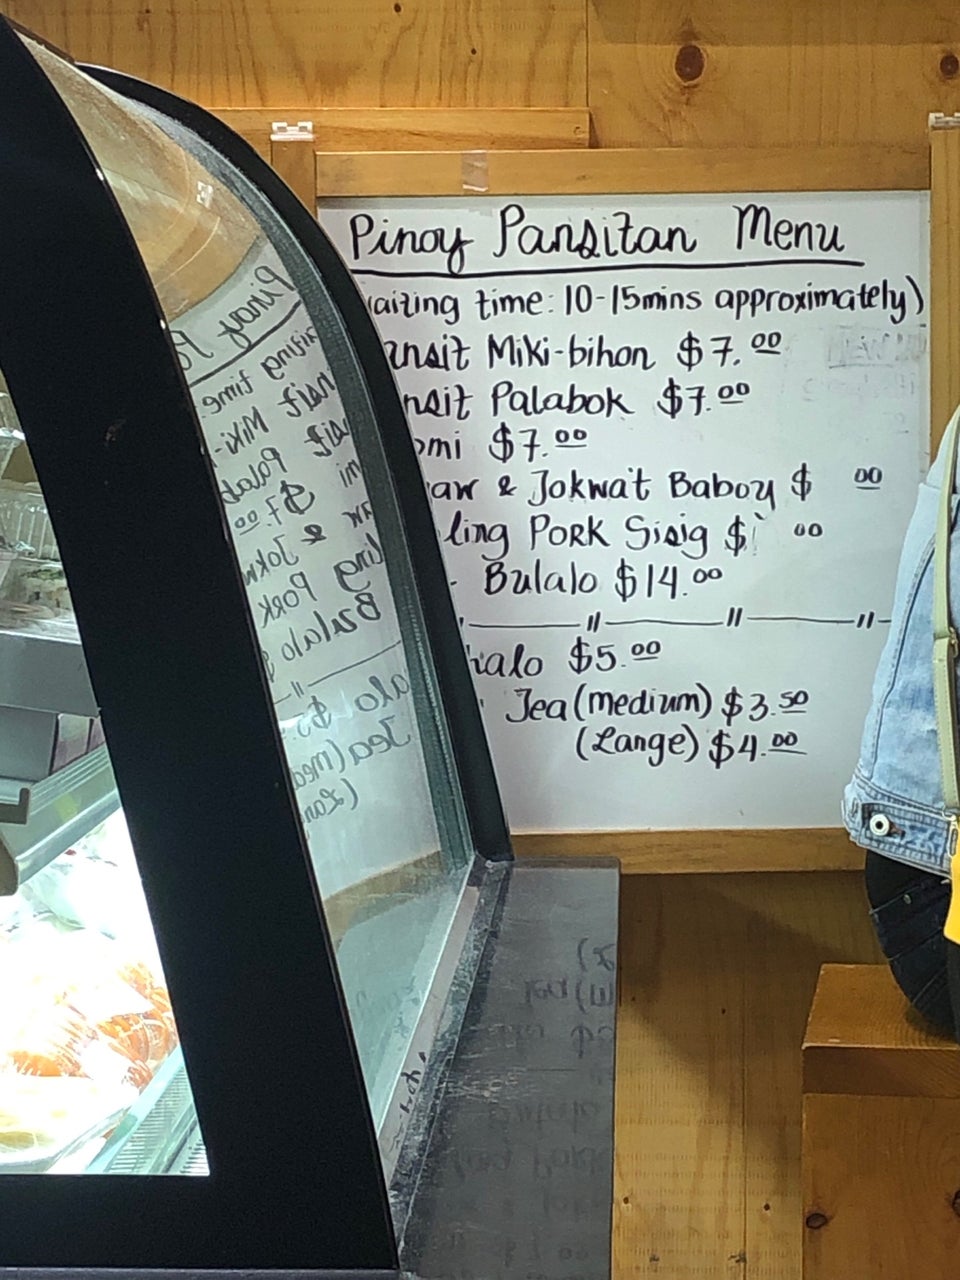 Pinoy Pansitan Menu
aiting time: 10-15mins approximately)
ansit Miki-bihon $7.00
nsit Palabok $7.00
omi $7.00
aw & Jokwat Baboy $ 00
ling PORK Sisig $ 00
Bulalo $14.00
halo $5.00
Tea (medium) $3.50
(Large) $4.00